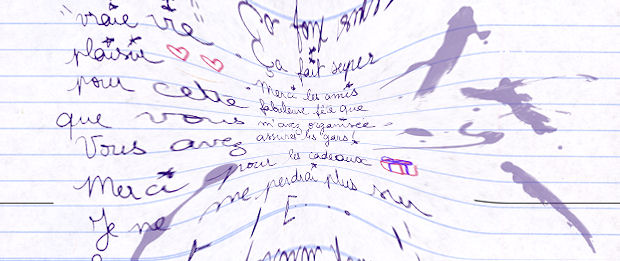 "vraie vie"
plaisir Ça fait super
pour cette Merci les amis
fabuleuse fête que
que vous m'avez organisée
Vous avez assurer les gars!
Merci pour les cadeaux
Je ne me perdrai plus sur
[...